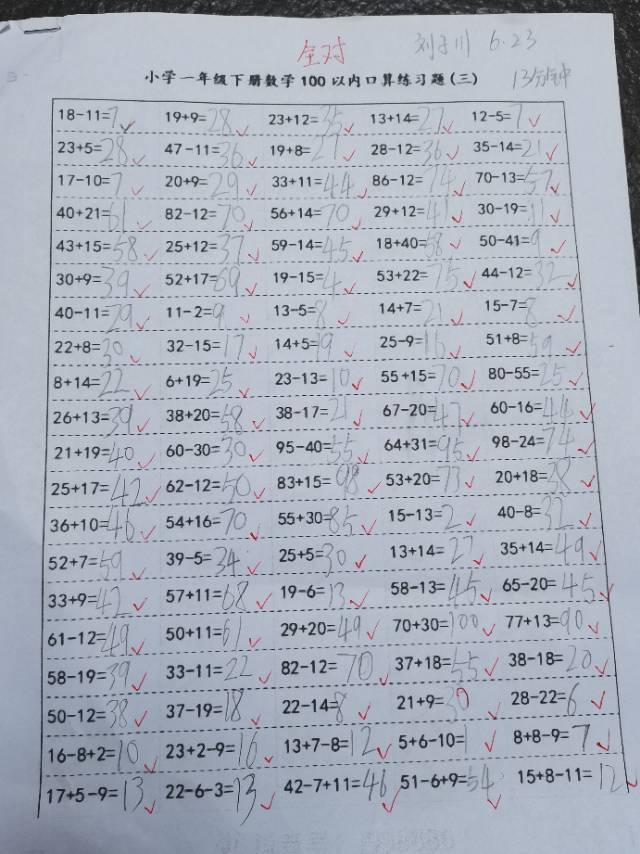 全对 刘子川 6.23
小学一年级下册数学100以内口算练习题(三) 13分钟
18-11=7 19+9=28 23+12=35 13+14=27 12-5=7
23+5=28 47-11=36 19+8=27 28-12=36 35-14=21
17-10=7 20+9=29 33+11=44 86-12=74 70-13=57
40+21=61 82-12=70 56+14=70 29+12=41 30-19=11
43+15=58 25+12=37 59-14=45 18+40=58 50-41=9
30+9=39 52+17=69 19-15=4 53+22=75 44-12=32
40-11=29 11-2=9 13-5=8 14+7=21 15-7=8
22+8=30 32-15=17 14+5=19 25-9=16 51+8=59
8+14=22 6+19=25 23-13=10 55+15=70 80-55=25
26+13=39 38+20=58 38-17=21 67-20=47 60-16=44
21+19=40 60-30=30 95-40=55 64+31=95 98-24=74
25+17=42 62-12=50 83+15=98 53+20=73 20+18=38
36+10=46 54+16=70 55+30=85 15-13=2 40-8=32
52+7=59 39-5=34 25+5=30 13+14=27 35+14=49
33+9=42 57+11=68 19-6=13 58-13=45 65-20=45
61-12=49 50+11=61 29+20=49 70+30=100 77+13=90
58-19=39 33-11=22 82-12=70 37+18=55 38-18=20
50-12=38 37-19=18 22-14=8 21+9=30 28-22=6
16-8+2=10 23+2-9=16 13+7-8=12 5+6-10=1 8+8-9=7
17+5-9=13 22-6-3=13 42-7+11=46 51-6+9=54 15+8-11=12